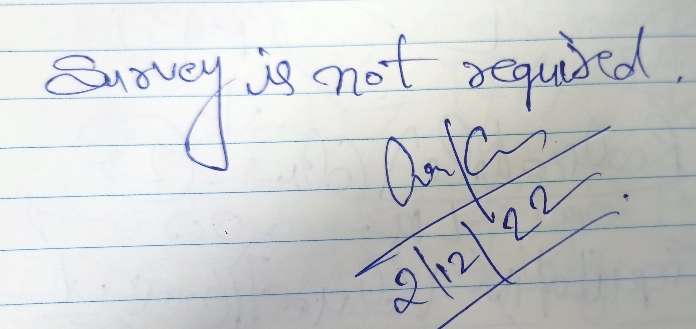 Survey is not required.
2/12/22